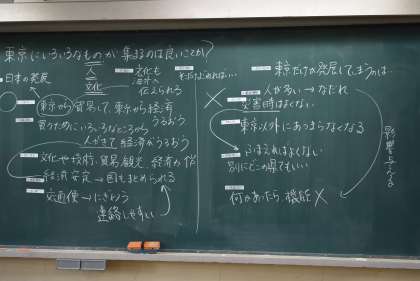 東京にいろいろなものが集まるのは良いことか?
人
文化
日本の発展
文化も
海外へ
伝えられる
それがよければいい…
東京から貿易して、東京から経済
うるおう
買うためにいろいろなところから
人がきて経済がうるおう
文化や技術、貿易、観光、経済が
経済安定→国もまとめられる
交通便→にぎわう
連絡しやすい
東京だけが発展してしまうのは…
人が多い→なだれ
災害時はよくない
東京以外にあつまらなくなる
別にどこの県でもいい
何かあったら、機能×
影響与える